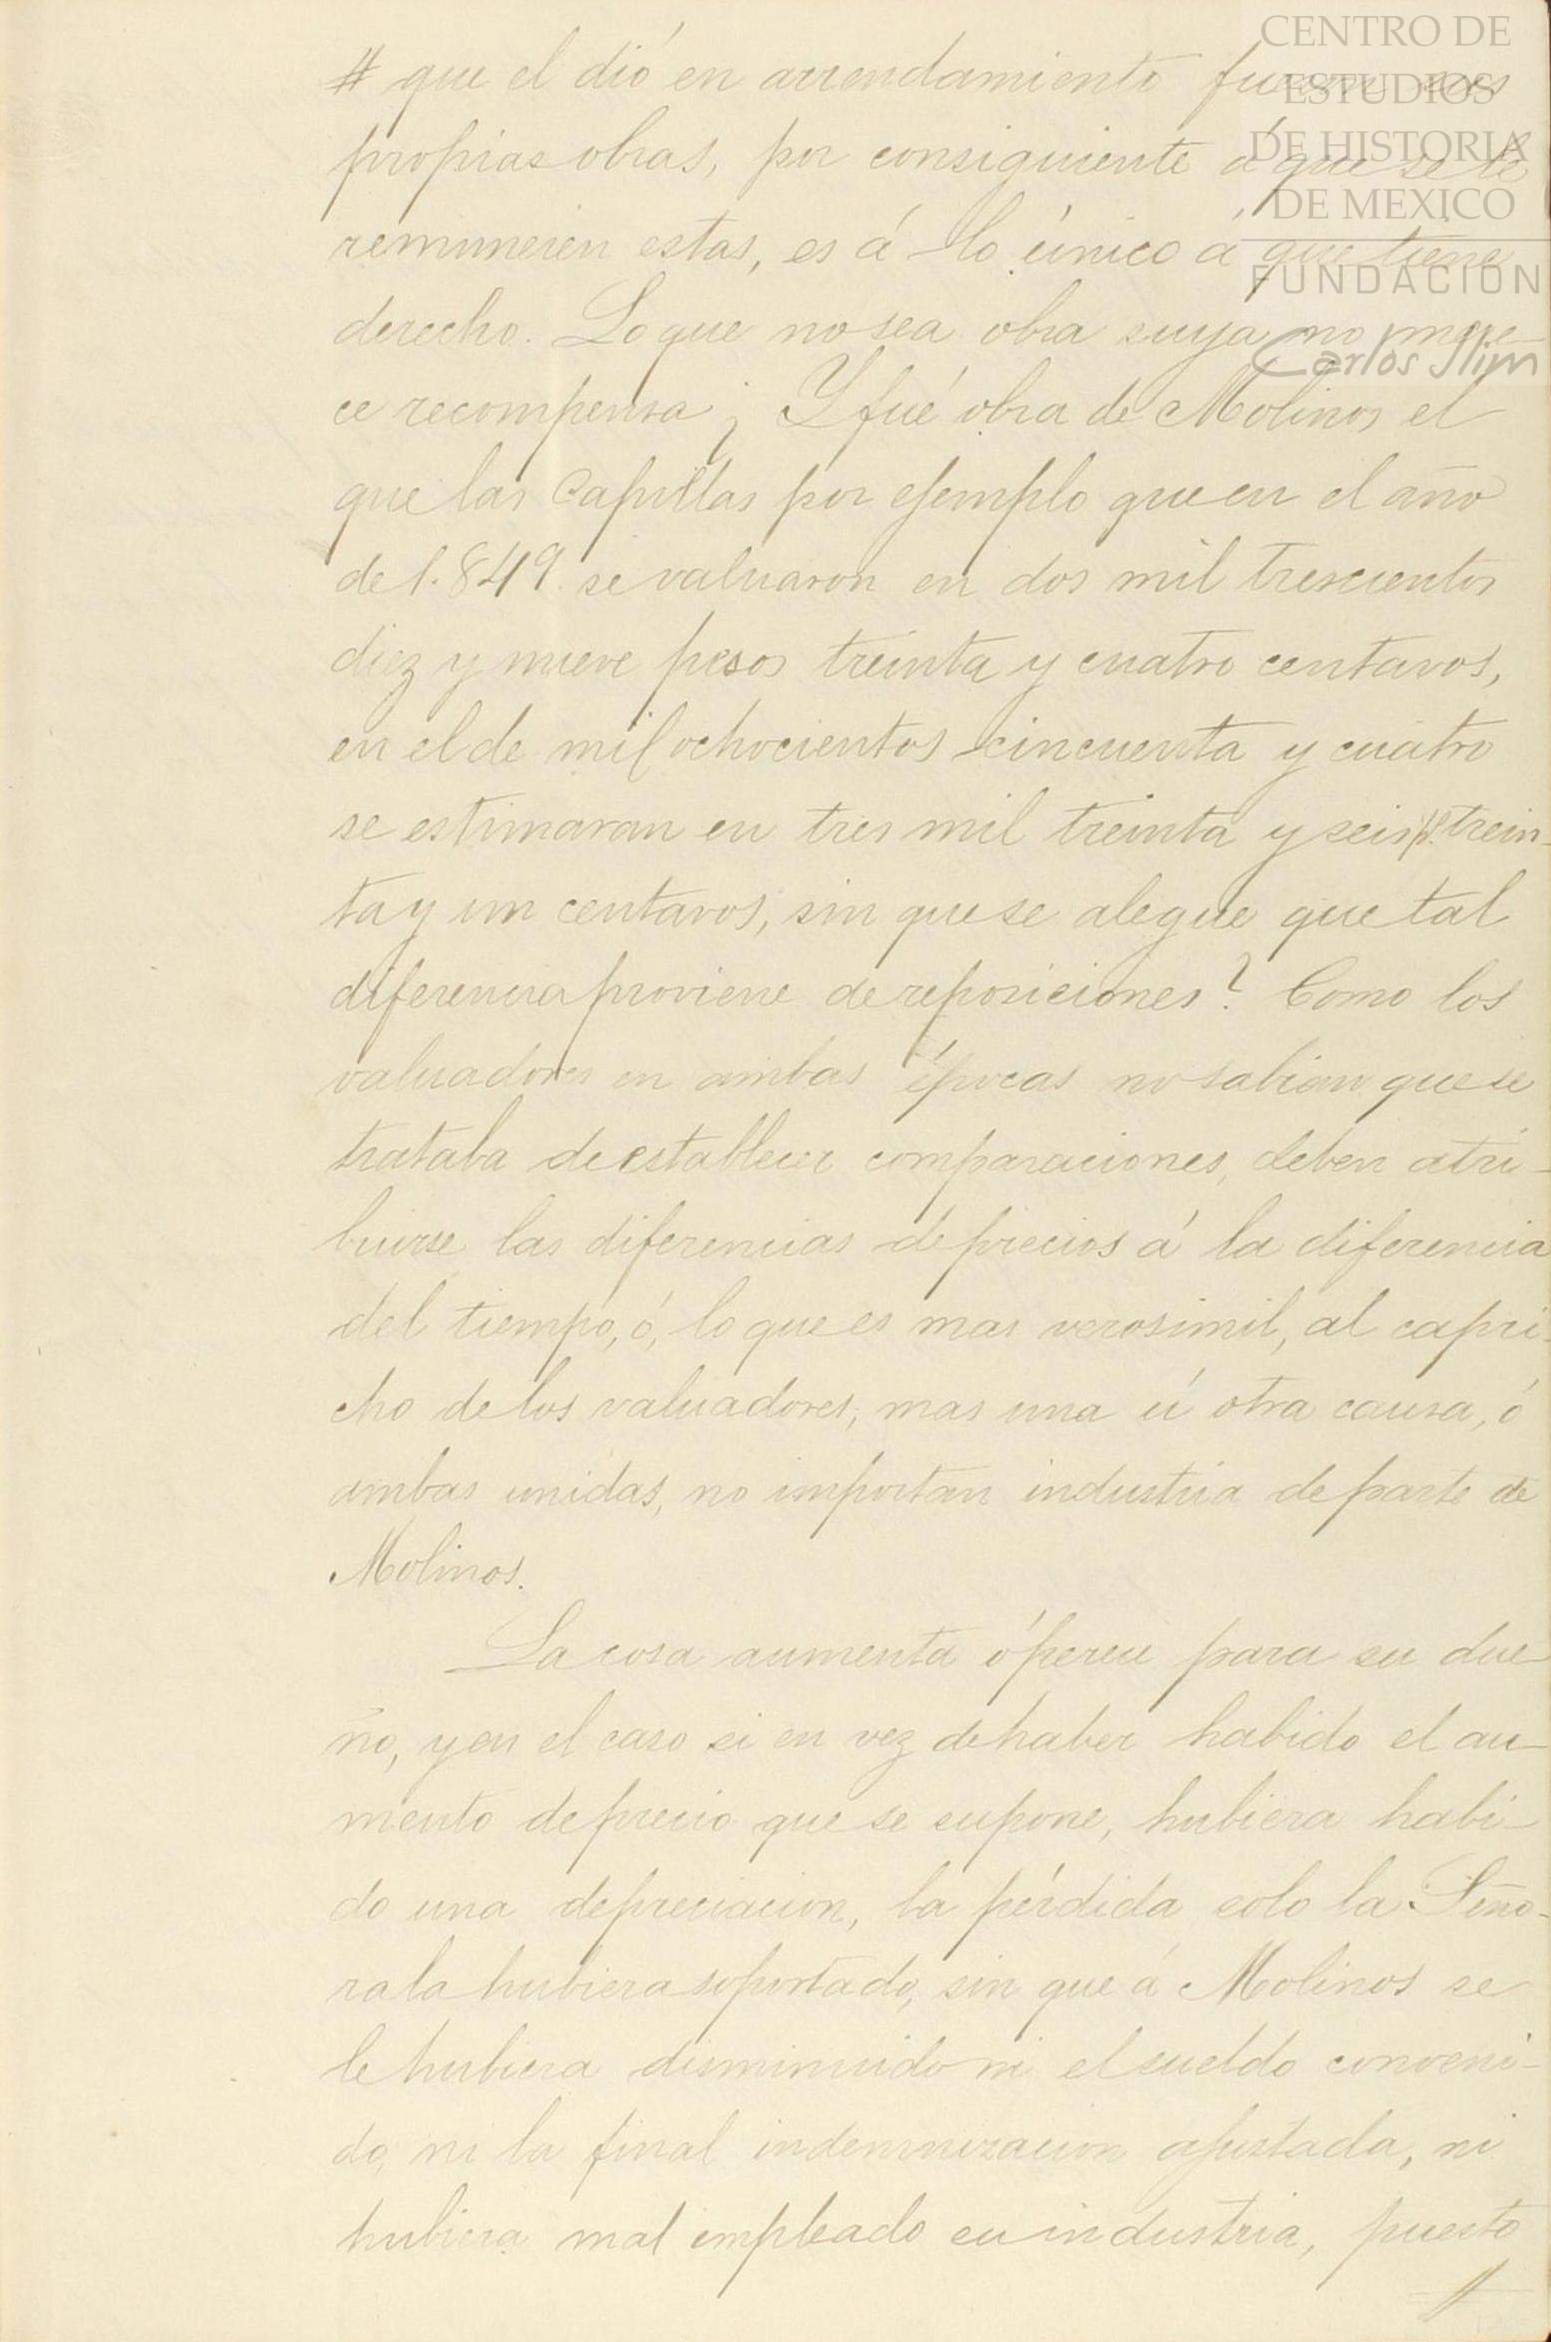 # que el dió en arrendamiento fueron sus
propias obras, por consiguiente á que se le
remuneren estas, es á lo único á que tiene
derecho. Lo que no sea obra suya no mere-
ce recompensa ¿ Y fué obra de Molinos el
que las Capillas por ejemplo que en el año
de 1.849. se valuaron en dos mil trescientos
diez y nueve pesos treinta y cuatro centavos,
en el de mil ochocientos cincuenta y cuatro
se estimaran en tres mil treinta y seis p.s trein-
ta y un centavos, sin que se alegue que tal
diferencia proviene de reposiciones? Como los
valuadores en ambas épocas no sabian que se
trataba de establecer comparaciones, deben atri-
buirse las diferencias de precios á la diferencia
del tiempo, ó, lo que es mas verosimil, al capri-
cho de los valuadores; mas una ú otra causa, ó
ambas unidas, no importan industria de parte de
Molinos.
La cosa aumenta ó perece para su due-
ño, y en el caso si en vez de haber habido el au-
mento de precio que se supone, hubiera habi-
do una depreciacion, la pérdida solo la Seño-
ra la hubiera soportado, sin que á Molinos se
le hubiera disminuido ni el sueldo conveni-
do, ni la final indemnizacion ajustada, ni
hubiera mal empleado su industria, puesto
CENTRO DE
ESTUDIOS
DE HISTORIA
DE MEXICO
FUNDACIÓN
Carlos Slim